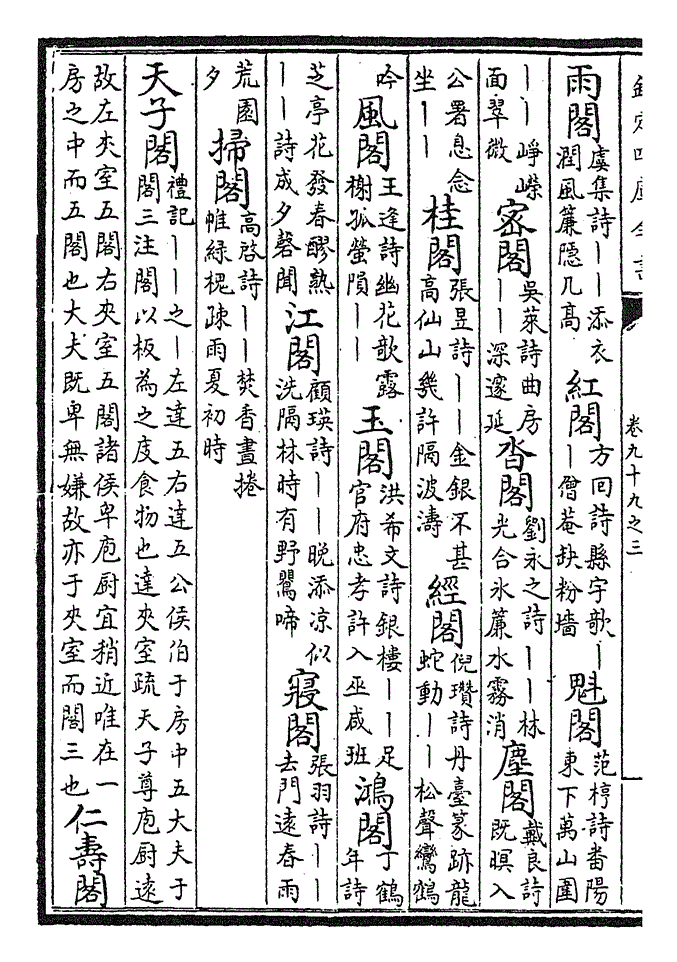 欽定四庫全書 卷九十九之三
雨閣 虞集詩丨丨添衣潤風簾隱几髙 紅閣 方回詩縣宇欹丨丨僧菴缺粉墻 魁閣 范梈詩番陽東下萬山圍
丨丨崢嶸面翠微 宻閣 吳萊詩曲房丨丨深邃延 沓閣 劉永之詩丨丨林光合氷簾水霧消 塵閣 戴良詩既暝入
公署息念坐丨丨 桂閣 張昱詩丨丨金銀不甚高仙山幾許隔波濤 經閣 倪瓚詩丹臺篆跡龍蛇動丨丨松聲鸞鶴
吟 風閣 王逢詩幽花欹露榭孤螢隕丨丨 玉閣 洪希文詩銀樓丨丨足官府忠孝許入巫咸班 鴻閣 丁鶴年詩
芝亭花發春醪熟丨丨詩成夕磬聞 江閣 顧瑛詩丨丨晚添凉似洗隔林時有野鸎啼 寢閣 張羽詩丨丨去門遠春雨
荒園夕 掃閣 高啓詩丨丨焚香晝捲帷緑槐疎雨夏初時
天子閣 禮記丨丨之丨左達五右達五公侯伯于房中五大夫于閣三注閣以板為之庋食物也達夾室疏天子尊庖厨遠
故左夾室五閣右夾室五閣諸侯卑庖厨宜稍近唯在一房之中而五閣也大夫既卑無嫌故亦于夾室而閣三也 仁壽閣